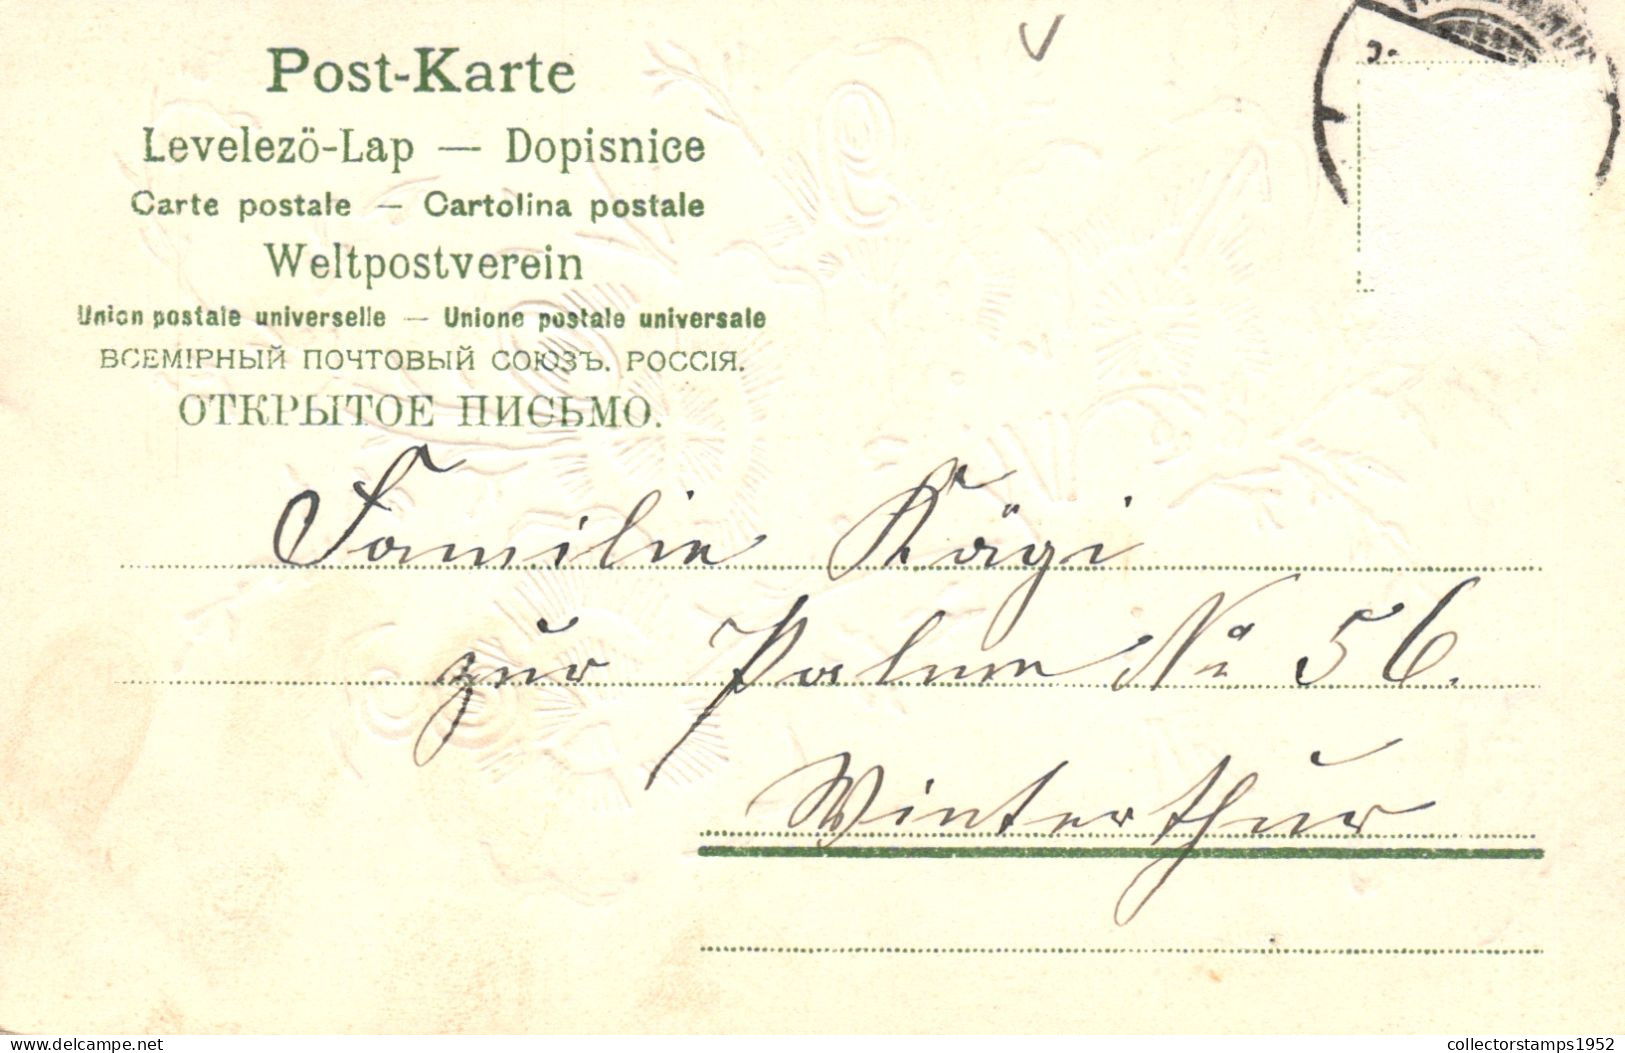 Post-Karte
Levelezö-Lap — Dopisnice
Carte postale — Cartolina postale
Weltpostverein
Union postale universelle — Unione postale universale
ВСЕМІРНЫЙ ПОЧТОВЫЙ СОЮЗЪ. РОССІЯ.
ОТКРЫТОЕ ПИСЬМО.
Familie Kägi
zur Palme No 56.
Winterthur
collectorstamps1952
delcampe.net